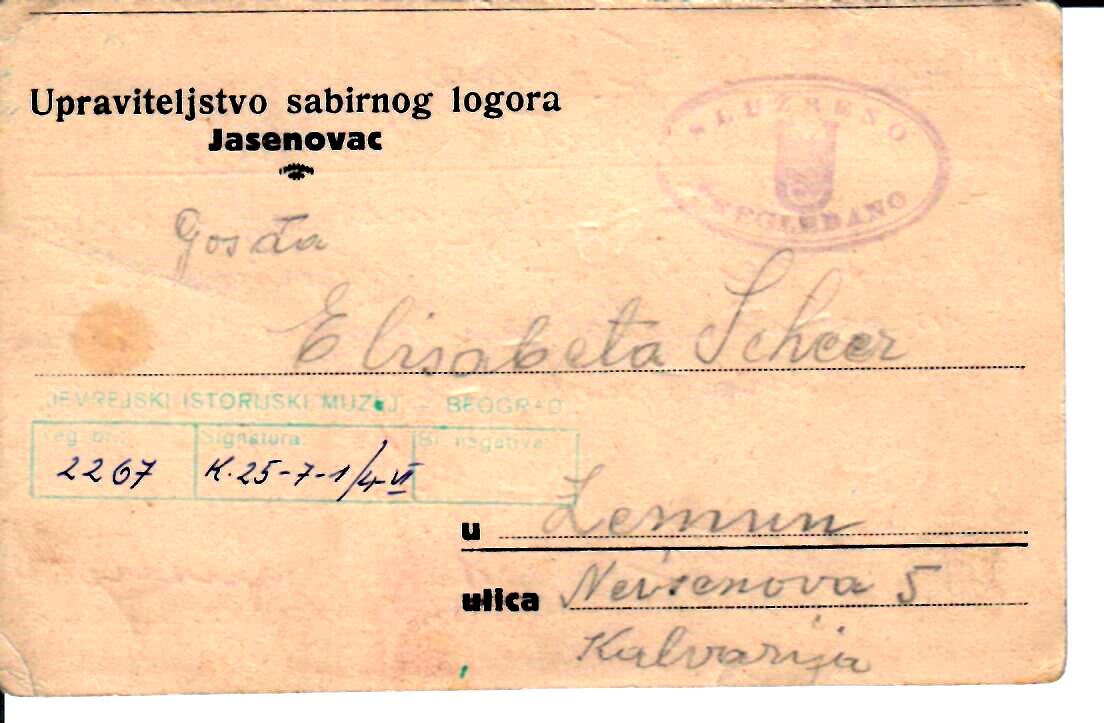 Upraviteljstvo sabirnog logora
Jasenovac
SLUŽBENO
PREGLEDANO
Gosđa
Elisabeta Scheer
JEVREJSKI ISTORIJSKI MUZEJ – BEOGRAD
reg. br.: Signatura: Br. negativa:
2267 K.25-7-1/4-VI
u Zemun
ulica 5
Kalvarija